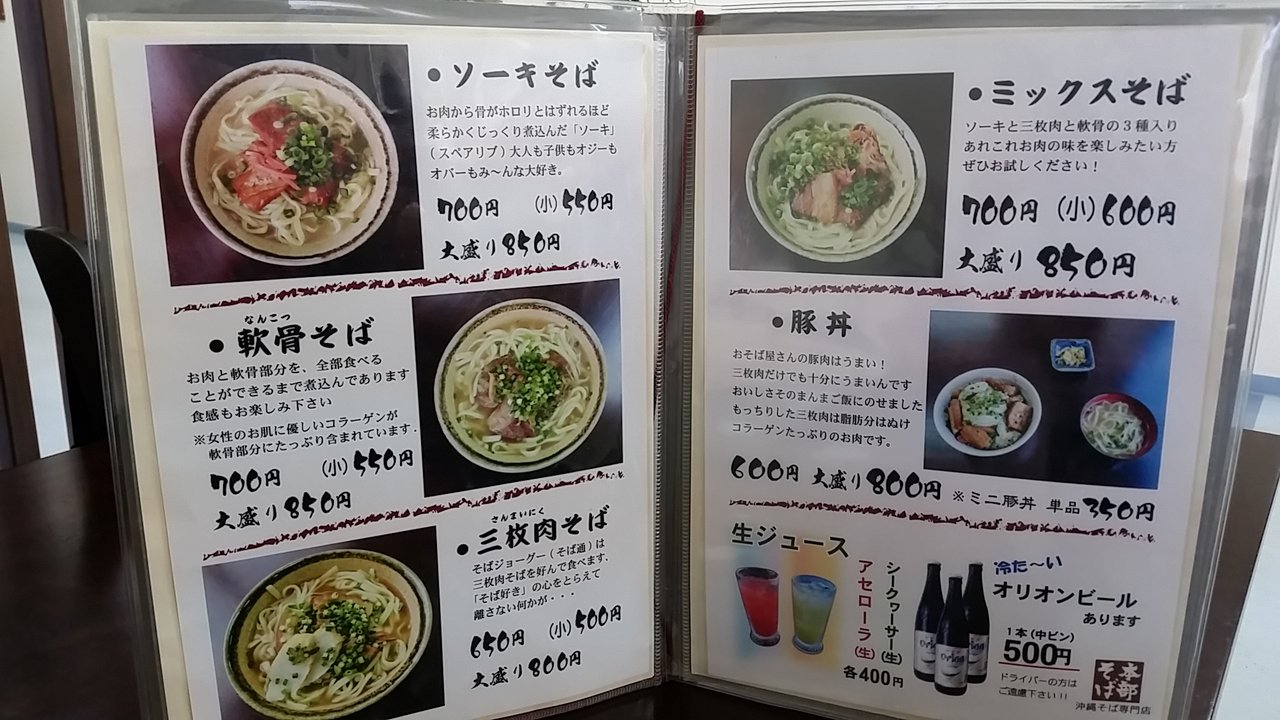 ●ソーキそば
お肉から骨がホロリとはずれるほど
柔らかくじっくり煮込んだ「ソーキ」
（スペアリブ）大人も子供もオジーも
オバーもみ〜んな大好き。
700円 （小）550円
大盛り850円
なんこつ
●軟骨そば
お肉と軟骨部分を、全部食べる
ことができるまで煮込んであります
食感もお楽しみ下さい
※女性のお肌に優しいコラーゲンが
軟骨部分にたっぷり含まれています.
700円 （小）550円
大盛り850円
さんまいにく
●三枚肉そば
そばジョーグー（そば通）は
三枚肉そばを好んで食べます.
「そば好き」の心をとらえて
離さない何かが・・・
650円 （小）500円
大盛り800円
●ミックスそば
ソーキと三枚肉と軟骨の３種入り
あれこれお肉の味を楽しみたい方
ぜひお試しください！
700円（小）600円
大盛り850円
●豚丼
おそば屋さんの豚肉はうまい！
三枚肉だけでも十分にうまいんです
おいしさそのまんまご飯にのせました
もっちりした三枚肉は脂肪分はぬけ
コラーゲンたっぷりのお肉です。
600円 大盛り800円 ※ミニ豚丼 単品350円
生ジュース
アセローラ（生）
シークヮーサー（生）
各400円
冷た〜い
オリオンビール
あります
１本（中ビン）
500円
ドライバーの方は
ご遠慮下さい!!
本部そば
沖縄そば専門店